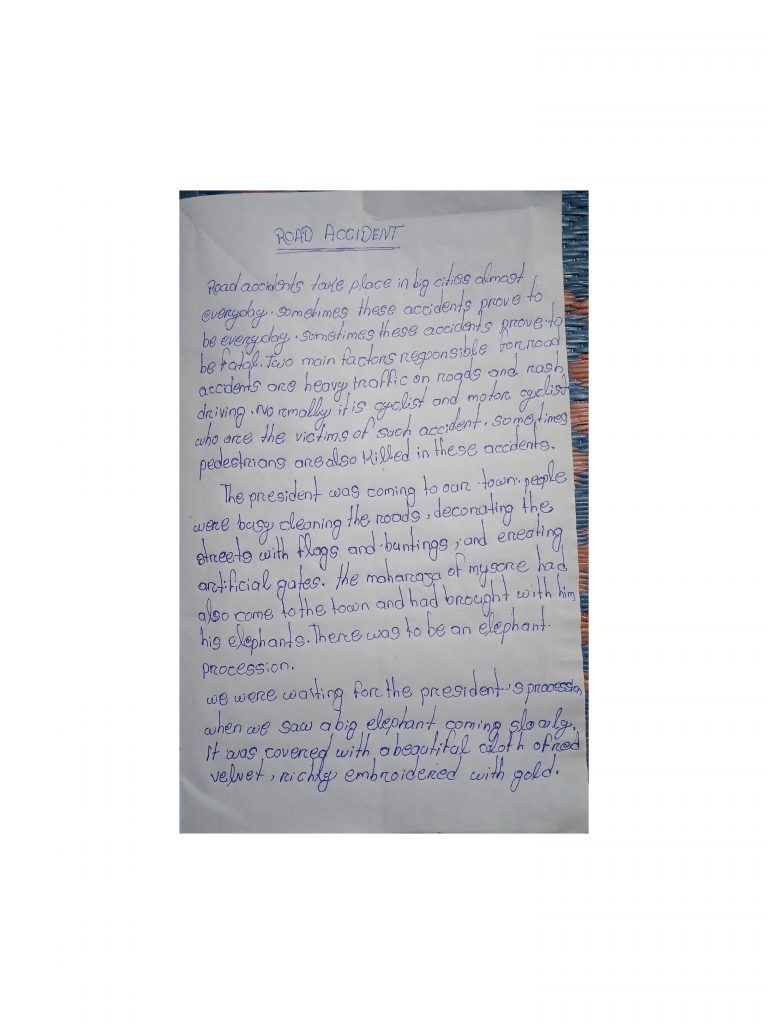 ROAD ACCIDENT
Road accidents take place in big cities almost
everyday. sometimes these accidents prove to
be everyday. sometimes these accidents prove to
be fatal. Two main factors responsible for road
accidents are heavy traffic on roads and rash
driving. Normally it is cyclist and motor cyclist
who are the victims of such accident. sometimes
pedestrians are also killed in these accidents.
The president was coming to our town. people
were busy cleaning the roads, decorating the
streets with flags and buntings, and ereating
artificial gates. the maharaja of mysore had
also come to the town and had brought with him
his elephants. There was to be an elephant
procession.
we were waiting for the president's procession
when we saw a big elephant coming slowly.
It was covered with a beautiful cloth of red
velvet, richly embroidered with gold.